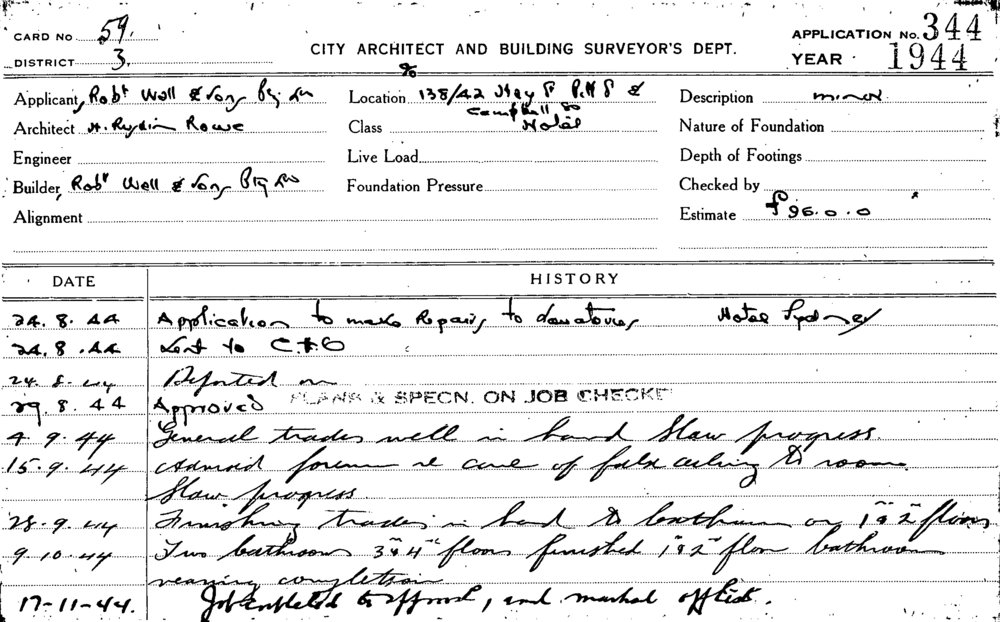 CARD NO 59.
DISTRICT 3.
CITY ARCHITECT AND BUILDING SURVEYOR'S DEPT.
APPLICATION No. 344
YEAR 1944
Applicant, Robt Wall & Sons Pty Ltd
Architect H. Ruskin Rowe
Engineer
Builder, Robt Wall & Sons Pty Ltd
Alignment
%
Location 138/42 Hay St Pitt St &
Campbell St
Class Hotel
Live Load
Foundation Pressure
Description minor
Nature of Foundation
Depth of Footings
Checked by
Estimate £96.0.0
DATE HISTORY
24. 8. 44 Application to make Repairs to Lavatories Hotel Sydney
24. 8. 44 Sent to
24. 8. 44 Reported on
29. 8. 44 Approved PLANS & SPECN. ON JOB CHECKED
4. 9. 44 General trades well in hand Slow progress.
15. 9. 44 Advised foreman re care of false ceiling to room.
Slow progress.
28. 9. 44 Finishing trades in hand to bathrooms on 1st & 2nd floors
9. 10. 44 Two bathrooms 3rd & 4th floors finished 1st & 2nd floor bathrooms
nearing completion
17-11-44. Job completed to approval, and marked off list.